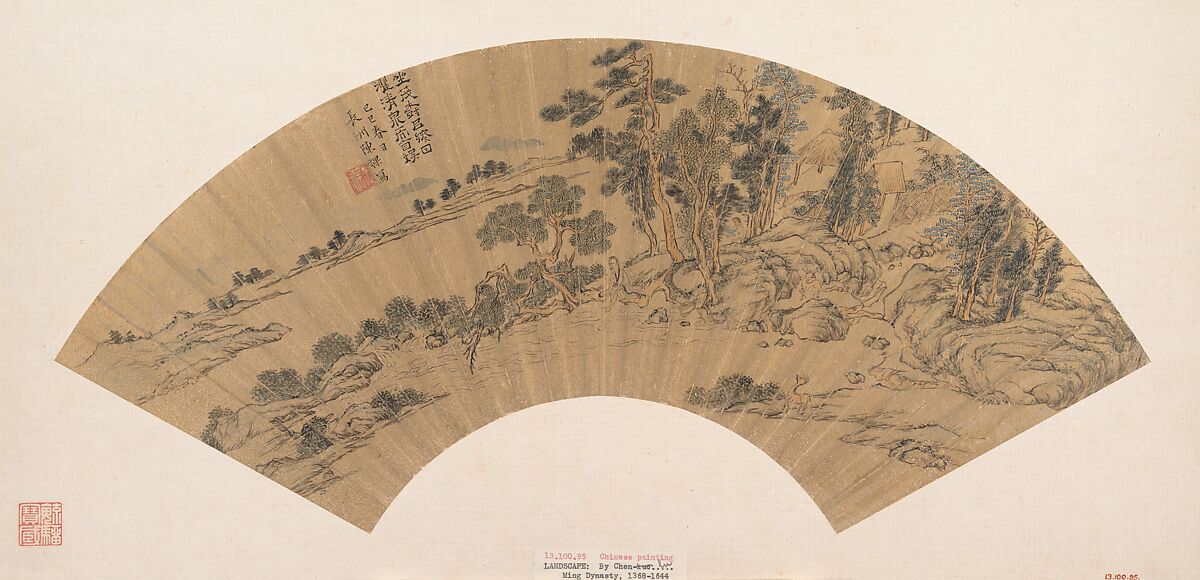 坐茂樹㠯終日
濯清泉㠯自潔
己巳春日
長洲陳祼寫
13.100.95 Chinese painting
LANDSCAPE: By Chen
Ming Dynasty, 1368-1644
13.100.95.